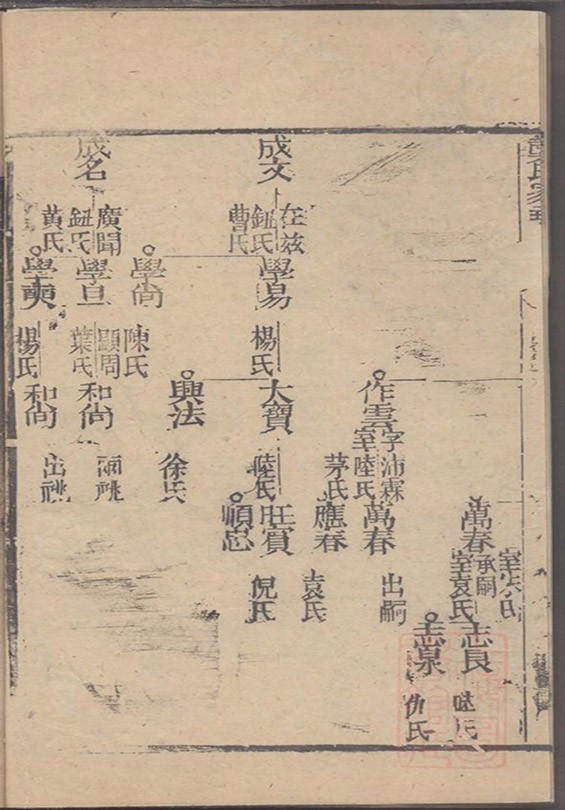 萬春
承嗣
室袁氏
志良
志泉
仇氏
作雲
字沛霖
室陸氏
茅氏
萬春
出嗣
應春
袁氏
成文
在兹
鈕氏
曹氏
學易
楊氏
大寶
陸氏
旺寶
倪氏
順忠
興法
徐氏
學尚
陳氏
成名
廣聞
鈕氏
黃氏
學旦
顯周
葉氏
和尚
學奭
楊氏
和尚
出祧